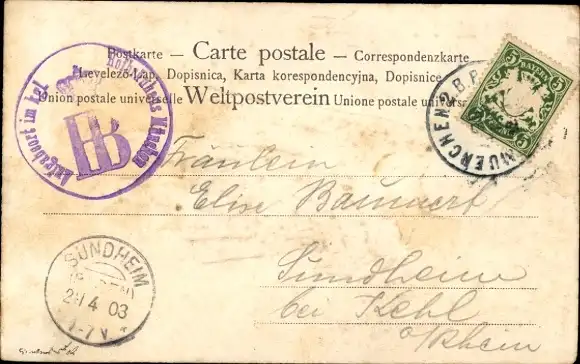 Postkarte — Carte postale — Correspondenzkarte
Levelező-Lap, Dopisnica, Karta korespondencyjna, Dopisnice
Union postale universelle Weltpostverein Unione postale univers
im kgl. Hofbräuhaus München
HB
5 BAYERN 5
MUENCHEN 2 B.P.
Fräulein
Elise Baumert
Sundheim
bei Kehl
a/Rhein
SUNDHEIM
24 4 03